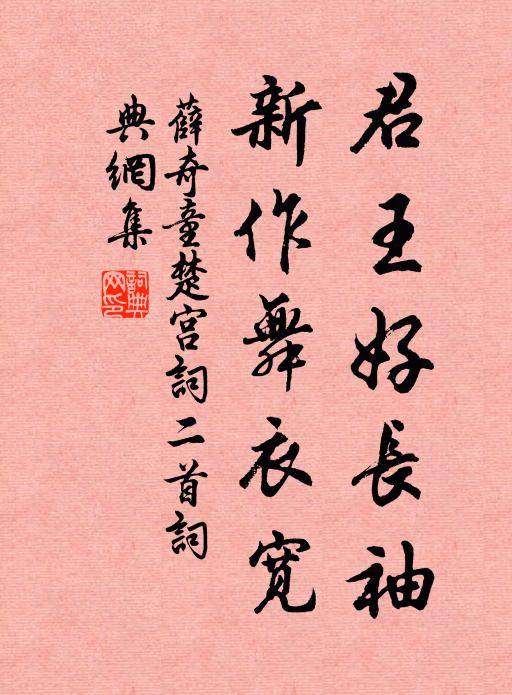 君王好長袖
新作舞衣寬
薛奇童楚宮詞二首詞
典網集
詞典網印